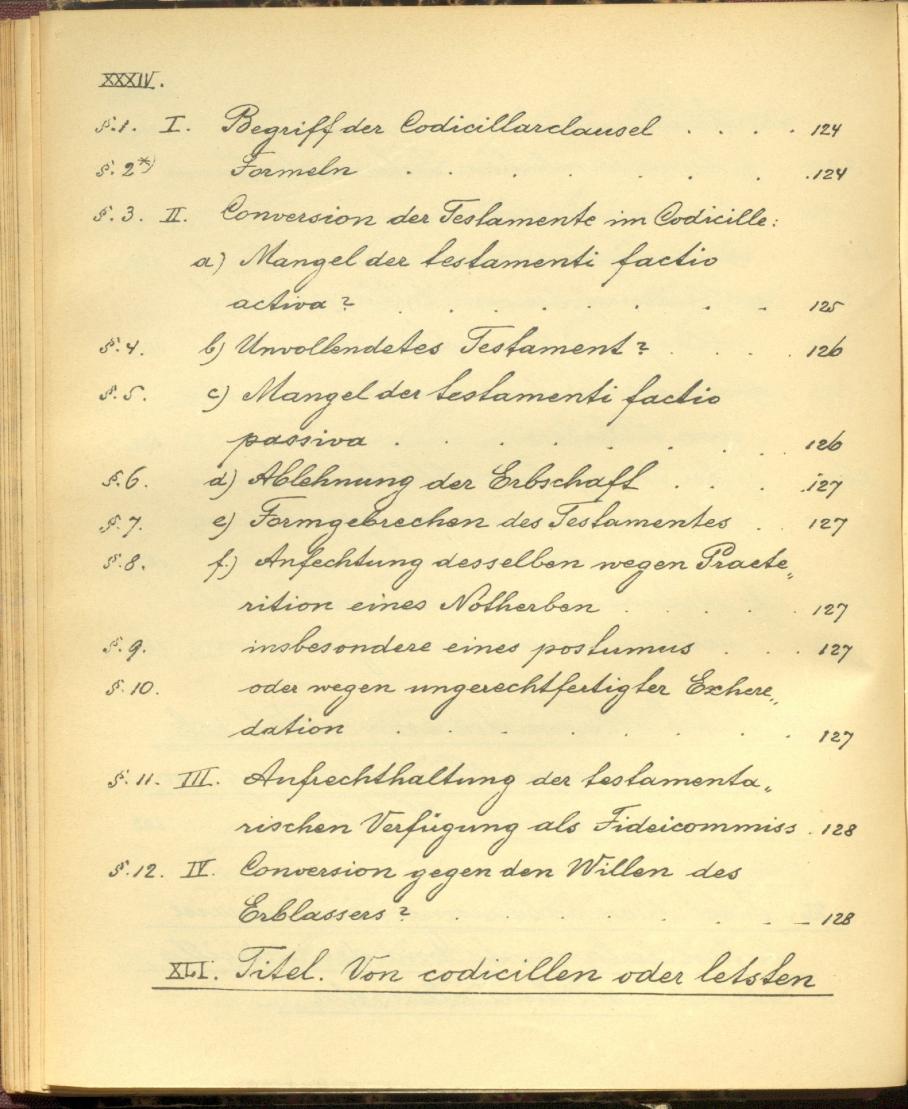 XXXIV.
§.1. I. Begriff der Codicillarclausel . . . . 124
§. 2*) Formeln . . . . . . . 124
§. 3. II. Conversion der Testamente im Codicille:
a) Mangel der testamenti factio
activa? . . . . . . . . 125
§.4. b) Unvollendetes Testament? . . . . 126
§.5. c) Mangel der testamenti factio
passiva . . . . . . . . 126
§.6. d) Ablehnung der Erbschaft . . . . 127
§.7. e) Formgebrechen des Testamentes . . 127
§.8. f.) Anfechtung desselben wegen Praete„
rition eines Notherben . . . . . 127
§.9. insbesondere eines postumus . . . 127
§.10. oder wegen ungerechtfertigter Exhere„
dation . . . . . . . . 127
§.11. III. Aufrechthaltung der testamenta„
rischen Verfügung als Fideicommiss . 128
§.12. IV. Conversion gegen den Willen des
Erblassers? . . . . . . . . 128
XLI. Titel. Von codicillen oder letsten